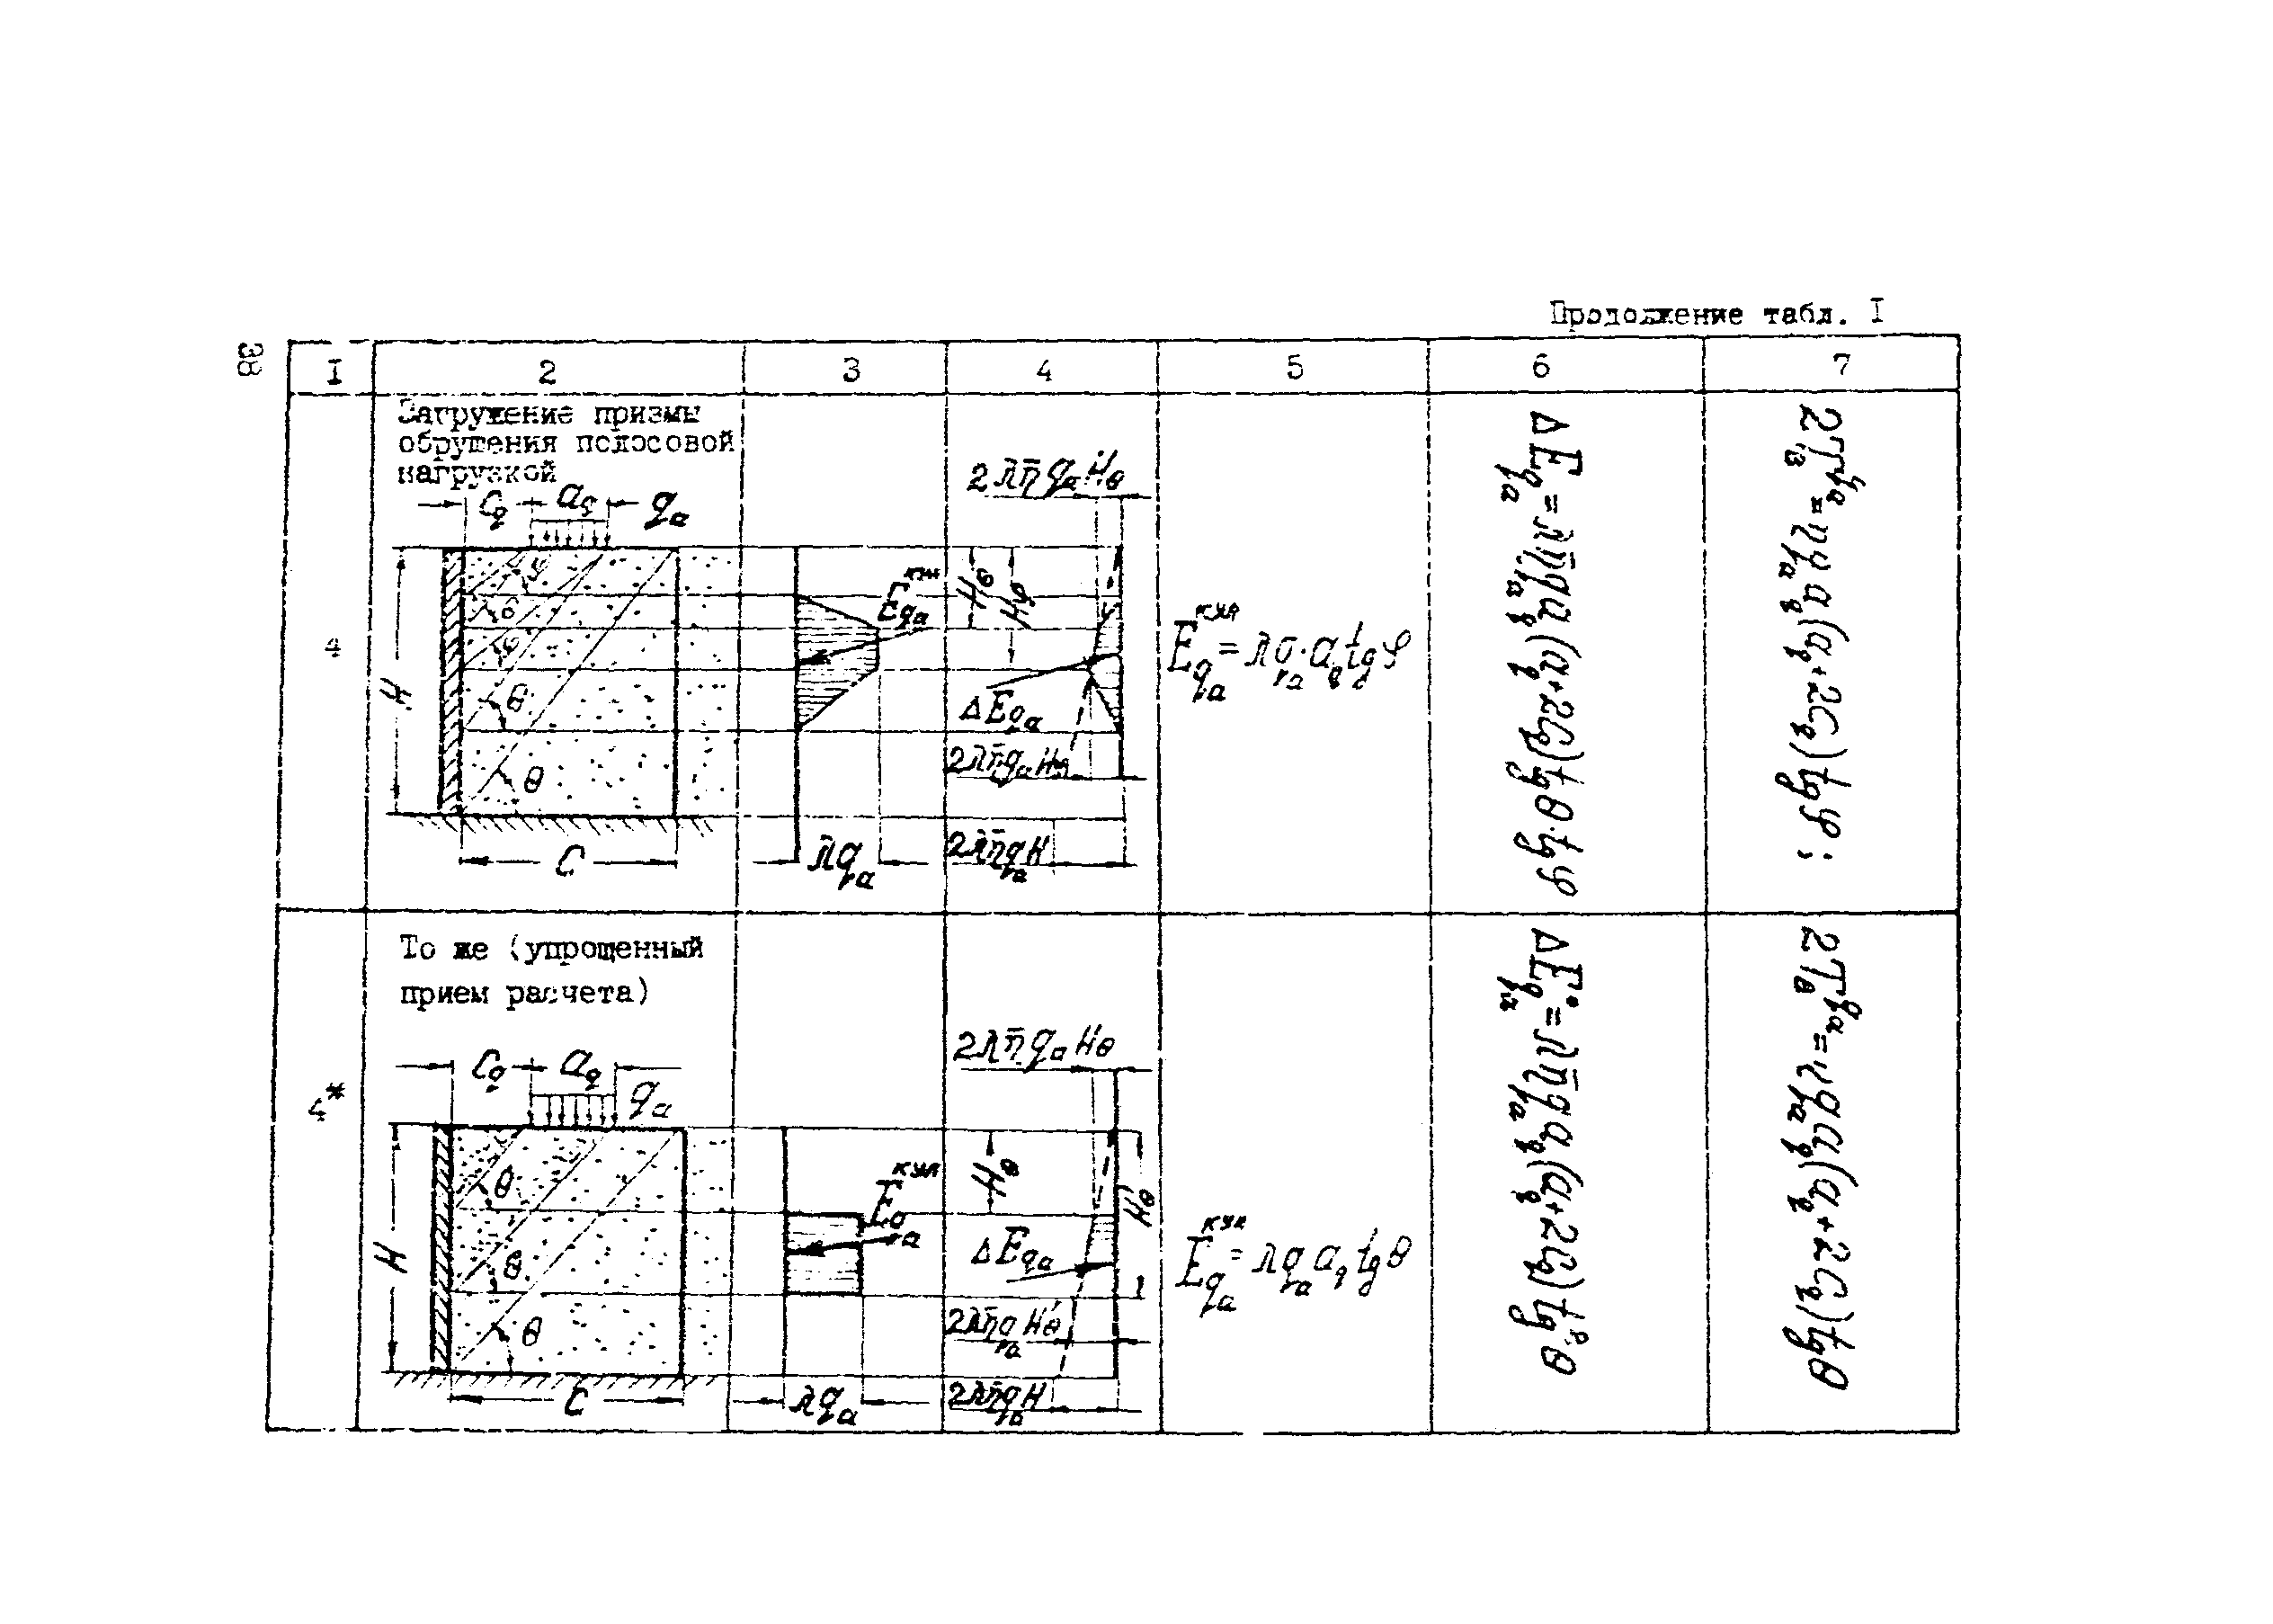 Продолжение табл. I
38
I 2 3 4 5 6 7
4
Загружение призмы
обрушения полосовой
нагрузкой
C_q a_q q_a
H
φ
θ
φ
θ
θ
C
E_{q_a}^{кул}
λq_a
2λη̄q_aH_θ
H_θ
H_φ
ΔE_{q_a}
2λη̄q_aH_φ
2λη̄q_aH
E_{q_a}^{кул} = λq_a·a_q tgφ
ΔE_{q_a} = λη̄q_a a_q(a_q+2C_q)tgθ·tgφ
2T_в^{q_a} = ηq_a a_q(a_q+2C_q)tgφ;
4*
То же (упрощенный
прием расчета)
C_q a_q q_a
H
θ
θ
θ
C
E_{q_a}^{кул}
λq_a
2λη̄q_aH_θ
H_θ
H'_θ
ΔE_{q_a}
2λη̄q_aH'_θ
2λη̄q_aH
E_{q_a}^{кул} = λq_a a_q tgθ
ΔE_{q_a} = λη̄q_a a_q(a_q+2C_q)tg²θ
2T_в^{q_a} = ηq_a a_q(a_q+2C_q)tgθ